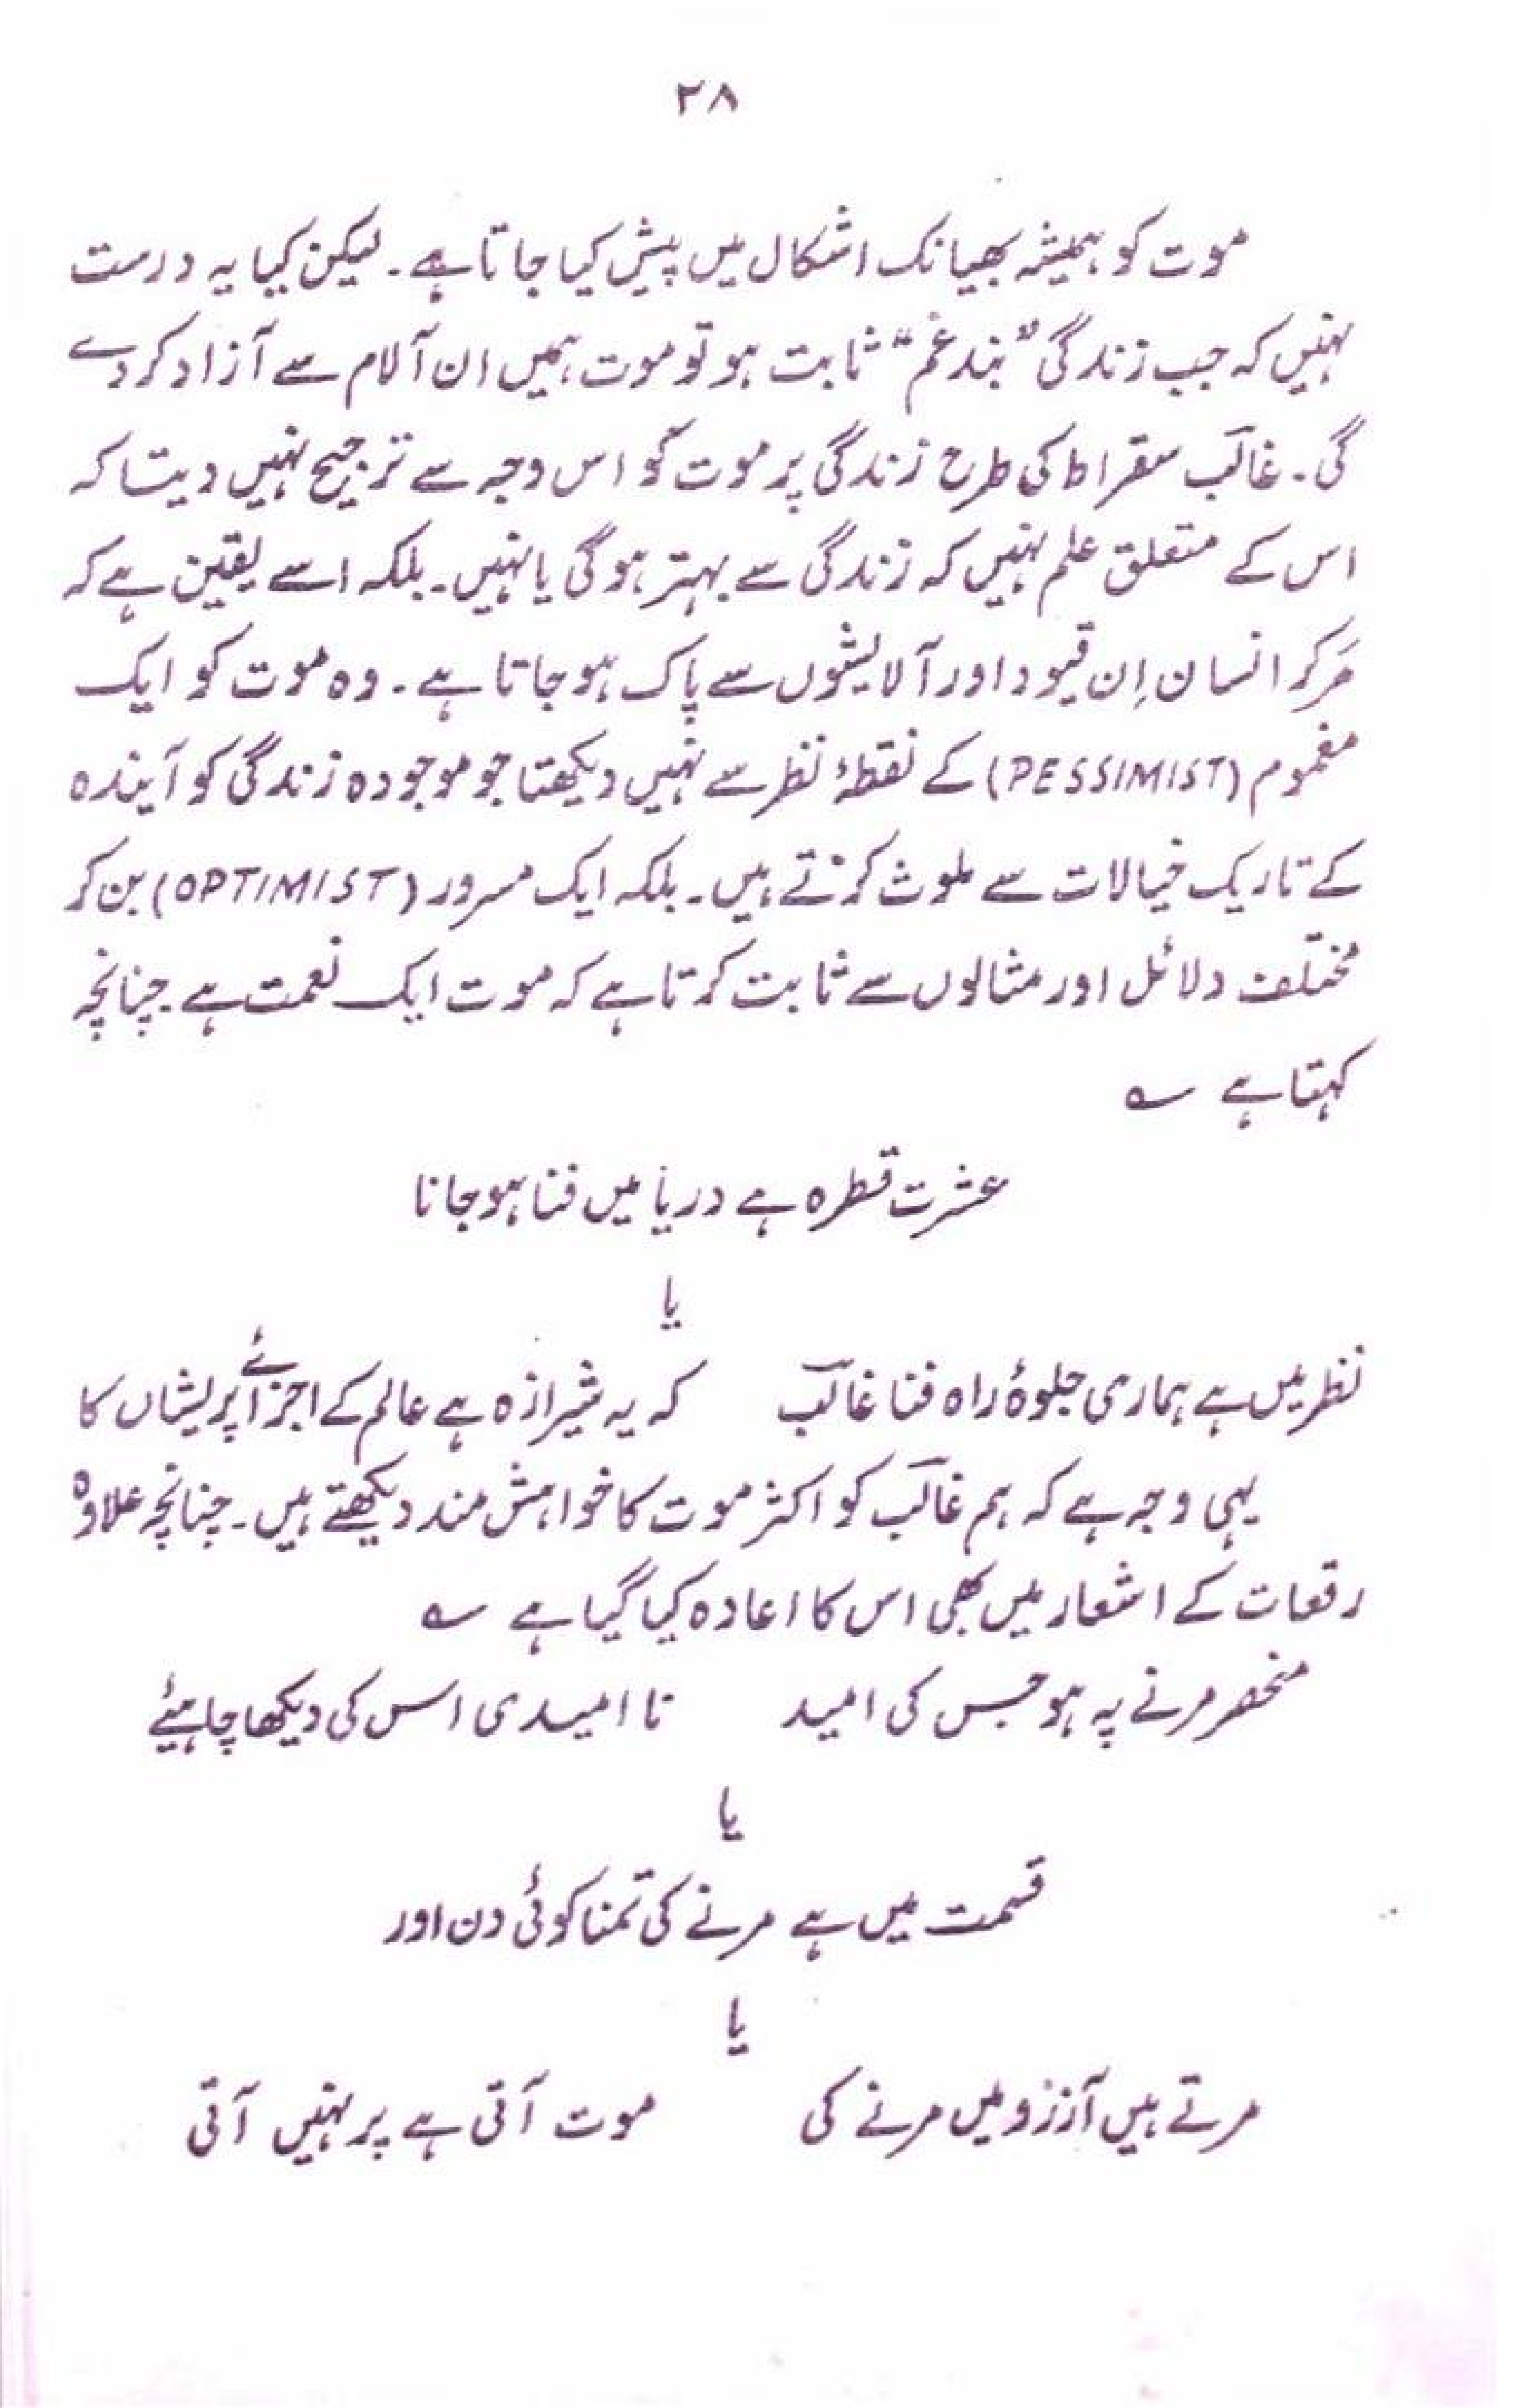 ۲۸
موت کو ہمیشہ بھیانک اشکال میں پیش کیا جاتا ہے۔ لیکن کیا یہ درست
نہیں کہ جب زندگی "بند غم" ثابت ہو تو موت ہمیں ان آلام سے آزاد کر دے
گی۔ غالب سقراط کی طرح زندگی پر موت کو اس وجہ سے ترجیح نہیں دیتا کہ
اس کے متعلق علم نہیں کہ زندگی سے بہتر ہوگی یا نہیں۔ بلکہ اسے یقین ہے کہ
مَرکر انسان اِن قیود اور آلایشوں سے پاک ہو جاتا ہے۔ وہ موت کو ایک
مغموم (PESSIMIST) کے نقطۂ نظر سے نہیں دیکھتا جو موجودہ زندگی کو آیندہ
کے تاریک خیالات سے ملوث کرتے ہیں۔ بلکہ ایک مسرور (OPTIMIST) بن کر
مختلف دلائل اور مثالوں سے ثابت کرتا ہے کہ موت ایک نعمت ہے چنانچہ
کہتا ہے ؎
عشرت قطرہ ہے دریا میں فنا ہو جانا
یا
نظر میں ہے ہماری جلوۂ راہ فنا غالب کہ یہ شیرازہ ہے عالم کے اجزائے پریشاں کا
یہی وجہ ہے کہ ہم غالب کو اکثر موت کا خواہش مند دیکھتے ہیں۔ چنانچہ علاوہ
رقعات کے اشعار میں بھی اس کا اعادہ کیا گیا ہے ؎
منحصر مرنے پہ ہو جس کی امید نا امیدی اس کی دیکھا چاہیئے
یا
قسمت میں ہے مرنے کی تمنا کوئی دن اور
یا
مرتے ہیں آرزو میں مرنے کی موت آتی ہے پر نہیں آتی